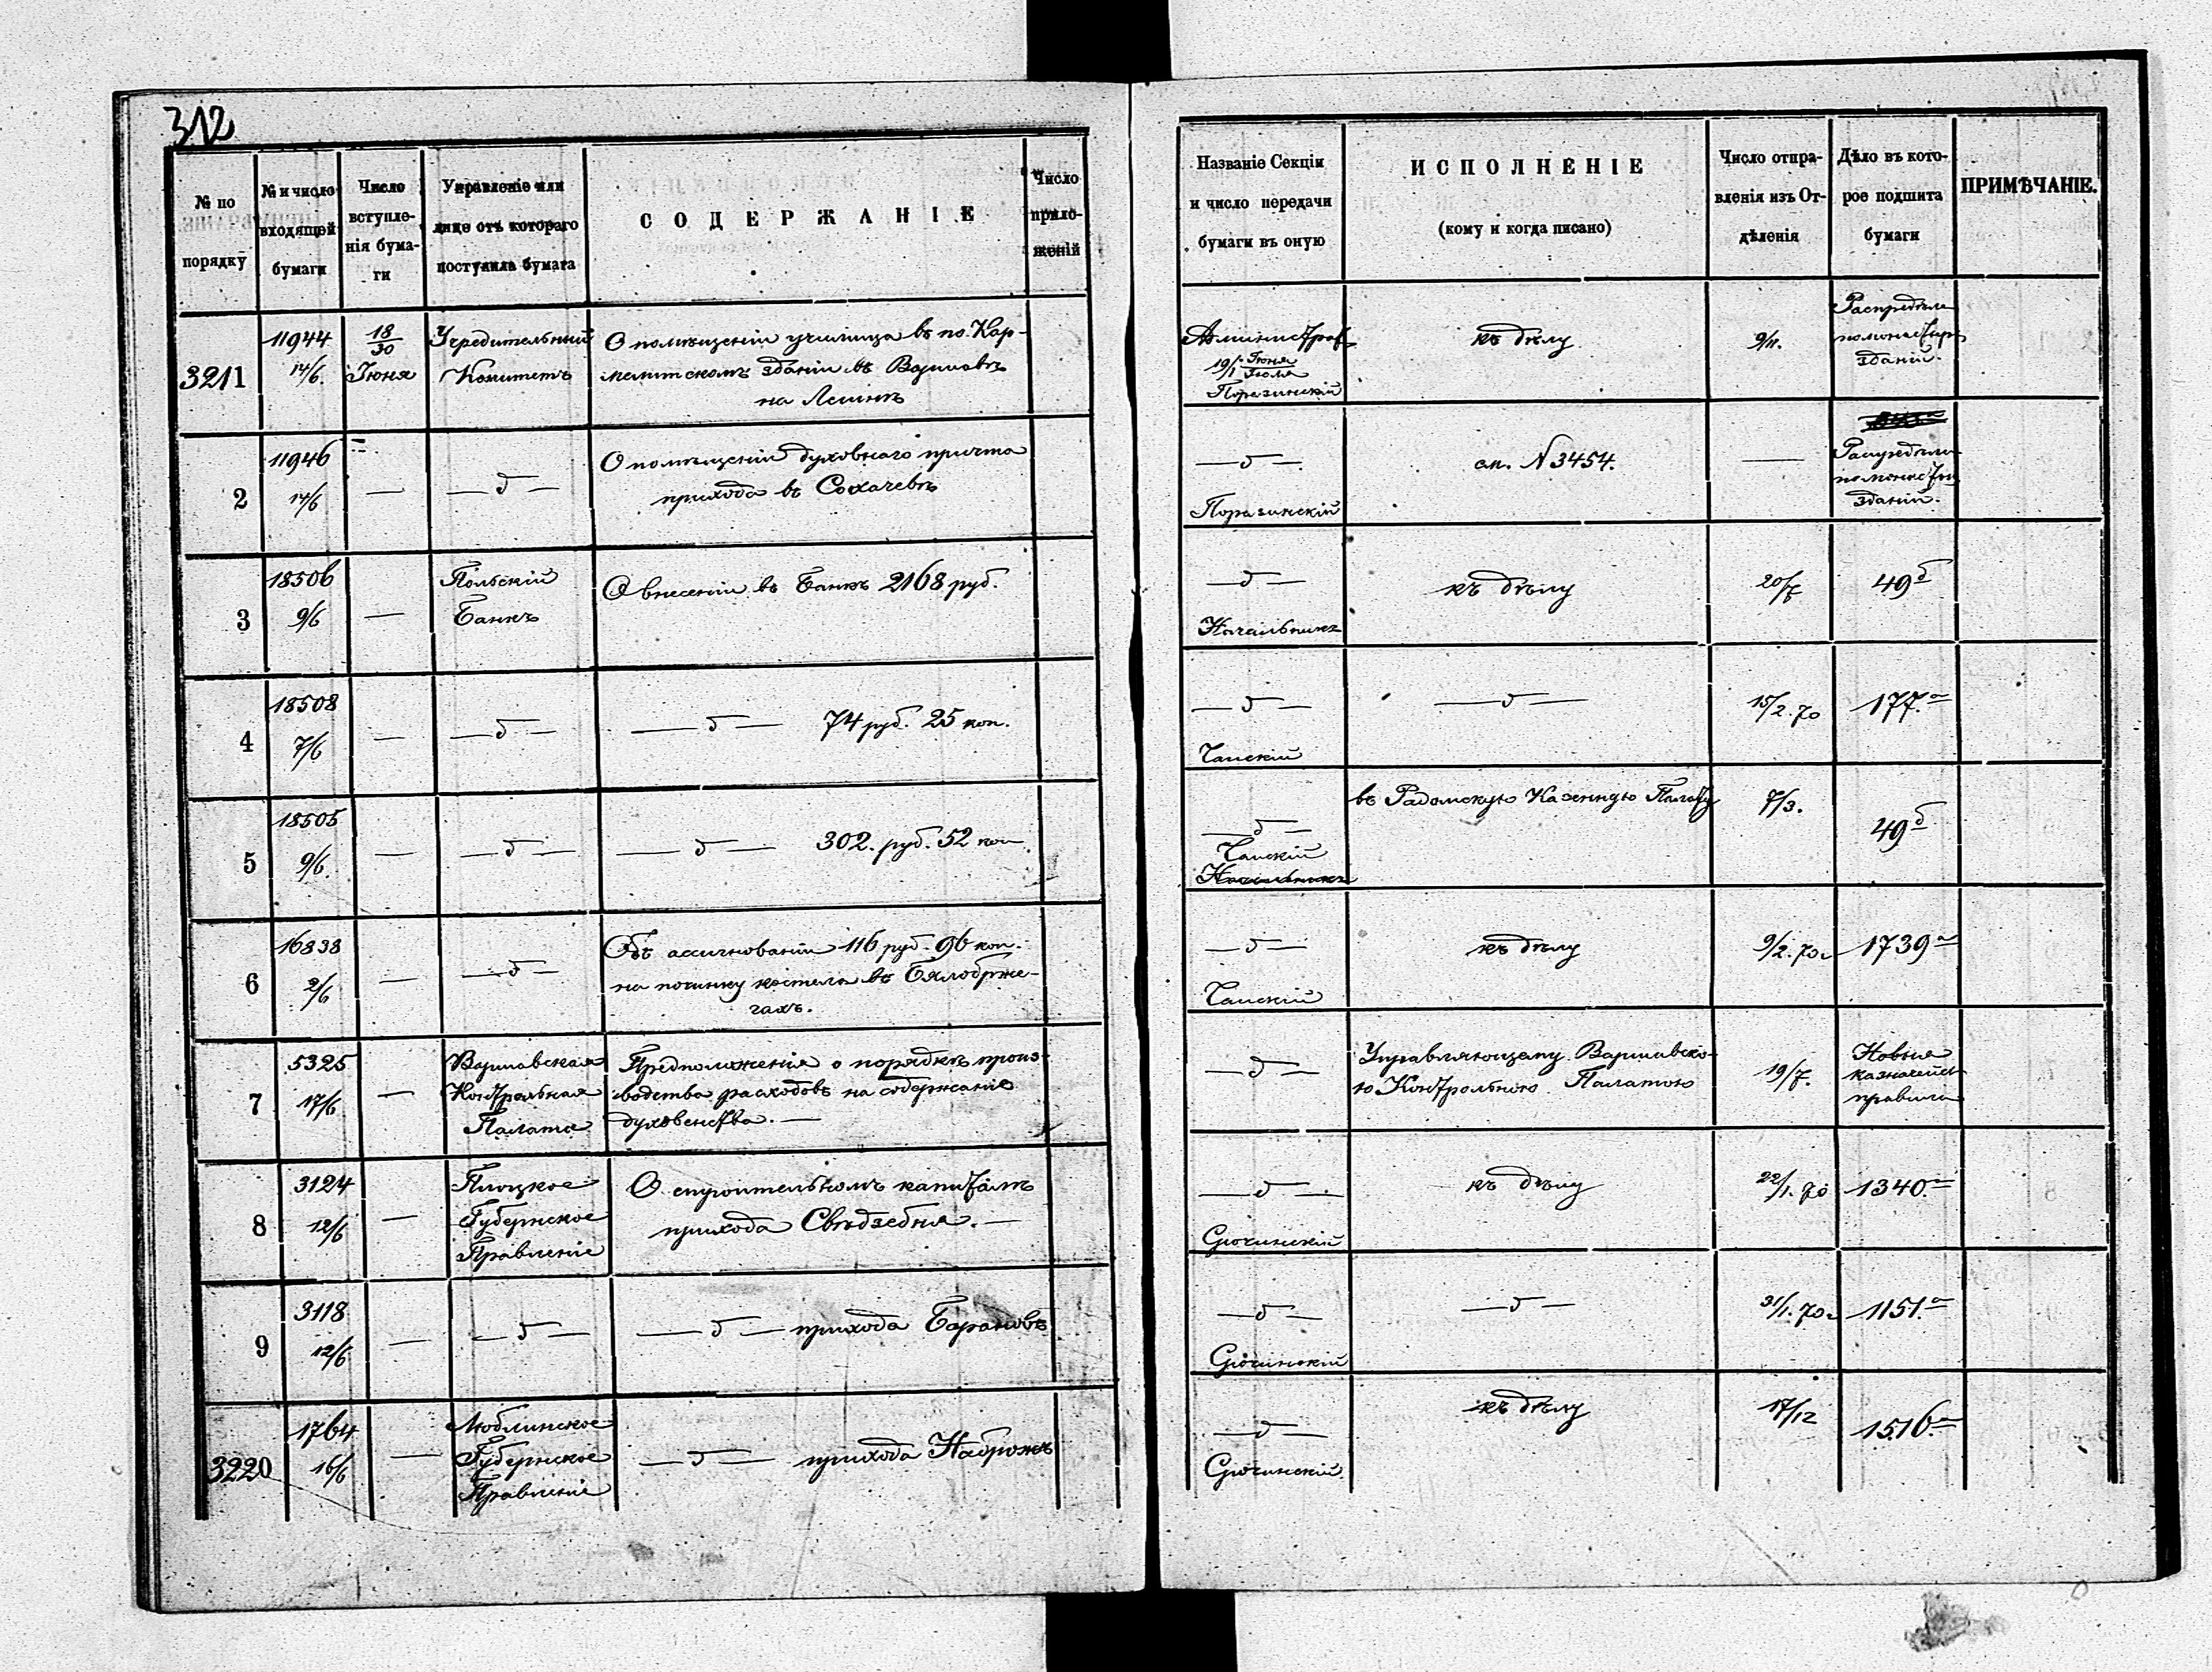 312
№ по порядку
№ и число входящей бумаги
Число вступле-
нія бума-
ги
Управленіе или
лице отъ котораго
поступила бумага
СОДЕРЖАНІЕ
Число
прило-
женій
Названіе Секціи
и число передачи
бумаги въ оную
ИСПОЛНЕНІЕ
(кому и когда писано)
Число отпра-
вленія изъ От-
дѣленія
Дѣло въ кото-
рое подшита
бумаги
ПРИМѢЧАНІЕ.
3211
11944
14/6.
18/30
Іюня
Учредительный
Комитетъ
О помѣщеніи училища въ по. Кар-
мелитскомъ зданіи въ Варшавѣ
на Лешнѣ
19/1 Іюня/Іюля
Поразинскій
къ дѣлу
9/11.
зданій.
2
11946
14/6
—
— д —
О помѣщеніи духовнаго причта
прихода въ Сохачевѣ
— д —
Поразинскій
см. N 3454.
—
зданій.
3
18506
9/6
—
Польскій
Банкъ
О внесеніи въ Банкъ 2168 руб.
— д —
Начальникъ
къ дѣлу
20/7
49 б
4
18508
7/6
—
— д —
— д — 74 руб. 25 коп.
— д —
Чайскій
— д —
15/2. 70
177. а
5
18505
9/6.
—
— д —
— д — 302. руб. 52 коп
— д —
Чайскій
Начальникъ
въ Радомскую Казенную Палату
7/3.
49 б
6
16838
2/6
—
— д —
Объ ассигнованіи 116 руб. 96 коп.
на починку костела въ Бялобрже-
гахъ.
— д —
Чайскій
къ дѣлу
9/2. 70.
1739 а
7
5325
17/6
—
Варшавская
Контрольная
Палата
Предположенія о порядкѣ произ-
водства расходовъ на содержаніе
духовенства. —
— д —
Управляющему Варшавско-
ю Контрольною Палатою
19/7.
Новыя
казначейск
правила
8
3124
12/6
—
Плоцкое
Губернское
Правленіе
О строительномъ капиталѣ
прихода Свѣдзебня. —
— д —
Сючинскій
къ дѣлу
22/1. 70
1340. а
9
3118
12/6
—
— д —
— д — прихода Барановъ
— д —
Сючинскій
— д —
31/1. 70.
1151. а
3220
1764
16/6
—
Люблинское
Губернское
Правленіе
— д — прихода Наброжъ
— д —
Сючинскій
къ дѣлу
17/12
1516. а